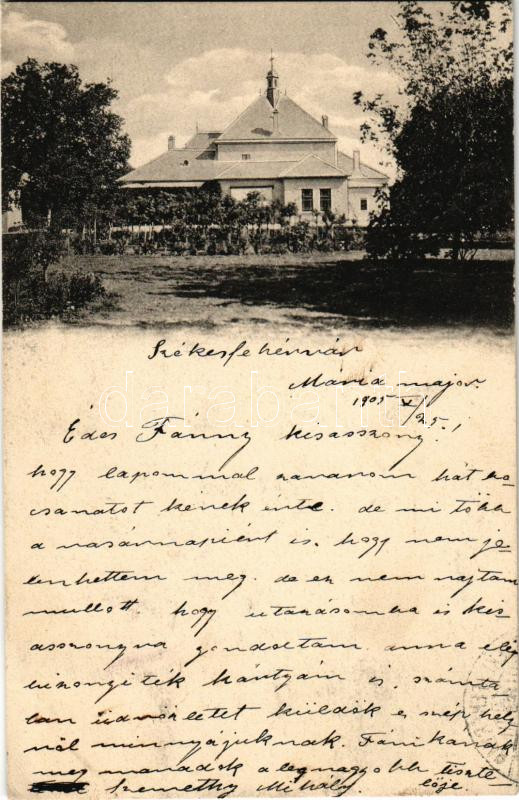 Székesfehérvár
Mária major
1905 V/25.
Édes Fánny kisasszony!
hogy lapommal zavarom hát bo-
csánatot kérek érte. de mi több
a vasárnapiért is, hogy nem je-
lenhettem meg. de ez nem rajtam
mullott hogy utazásomba is kis-
asszonyra gondoltam. anna elég
bizonyiték kártyám is, számta-
lan üdvözletet küldök e szép hely
ről minnyájuknak. Fánikának
meg maradok a legnagyobb tiszte-
Szemethy Mihály. lője.
darabanth.com